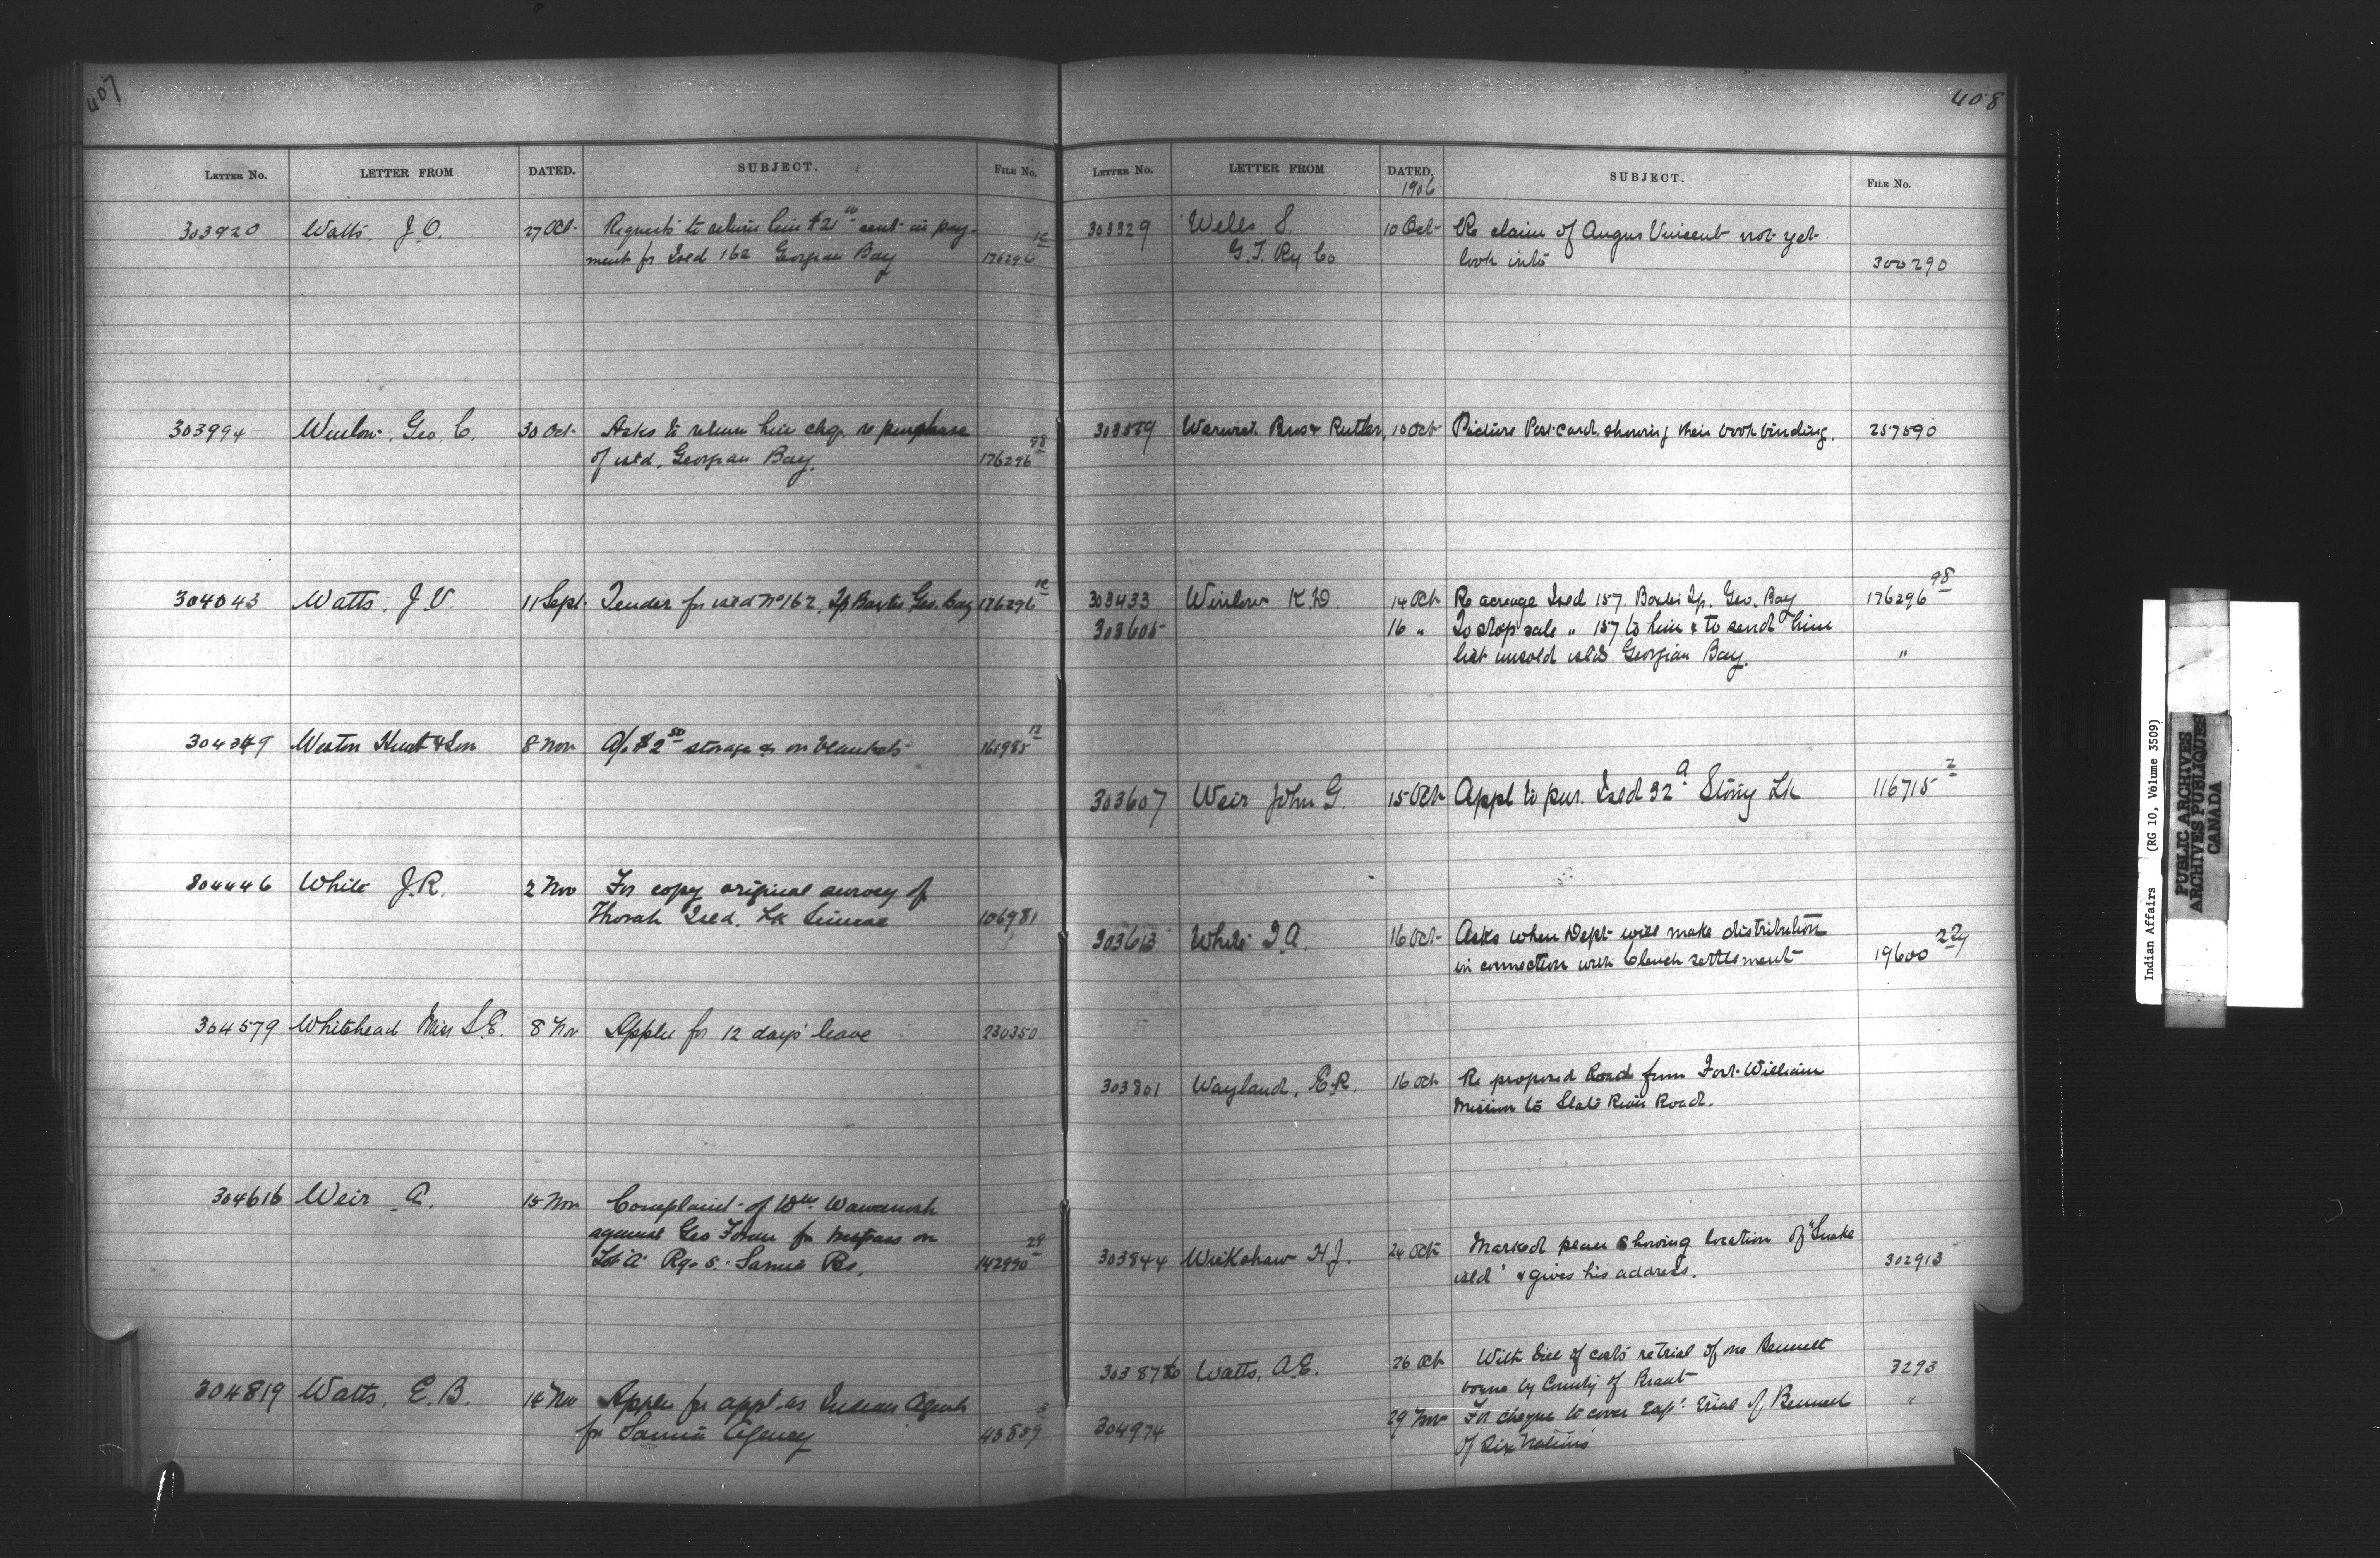 407
LETTER No. LETTER FROM DATED. SUBJECT. FILE No.
303920 Watts, J.O. 27 Oct. Requests to return him $21 00 sent in pay-
ment for Isld 162 Georgian Bay 176296
303994 Winlow, Geo. C. 30 Oct. Asks to return him chq. re purchase
of isld, Georgian Bay. 176296 98
304043 Watts, J.V. 11 Sept. Tender for isld No 162, Tp Baxter Geo. Bay 176296
304349 Weston Hunt & Son 8 Nov A/c $2 50 storage on blankets 161985 12
304446 White J.R. 2 Nov For copy original survey of
Thorah Isld. Lk Simcoe 106981
304579 Whitehead Miss S.E. 8 Nov Applies for 12 days' leave 230350
304616 Weir A. 15 Nov Complaint of Wm Wawanosh
against Geo for trespass on
Lot "A" Rge 5. Sarnia Res. 142990 29
304819 Watts, E.B. 14 Nov Applies for appt. as Indian Agent
for Sarnia Agency 43859 3
408
LETTER No. LETTER FROM DATED. SUBJECT. FILE No.
1906
303329 Wells, S. 10 Oct. Re claim of Angus Vincent not yet
G.T. Ry Co look into 300290
303339 Warwick Bros & Rutter, 10 Oct Picture Post card showing their book binding. 257590
303433 Winlow K.D. 14 Oct Re acreage Isld 157 Baxter Tp. Geo. Bay 176296 98
303605 16 " To stop sale " 157 to him & to send him
list unsold islds Georgian Bay. "
303607 Weir John G. 15 Oct Appl to pur. Isld 32 a Stony Lk 116715 2
303613 White J.A. 16 Oct Asks when Dept will make distribution
in connection with Clench settlement 19600 227
303801 Wayland, E.R. 16 Oct Re proposed Road from Fort William
Mission to Slate River Road.
303844 Wickshaw H.J. 24 Oct Marked plan showing location of "Snake
isld" & gives his address. 302913
Watts, A.E. 26 Oct With bill of costs re trial of one Bennett
borne by County of Brant 3293
304974 29 Nov For cheque to cover Exps. trial of Bennett "
of Six Nations
Indian Affairs (RG 10, Volume 3509)
PUBLIC ARCHIVES
ARCHIVES PUBLIQUES
CANADA